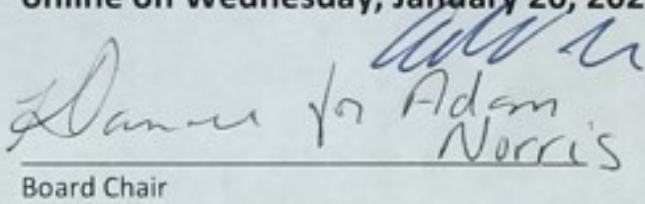 Online on Wednesday, January 20, 202
for Adam
Norris
Board Chair